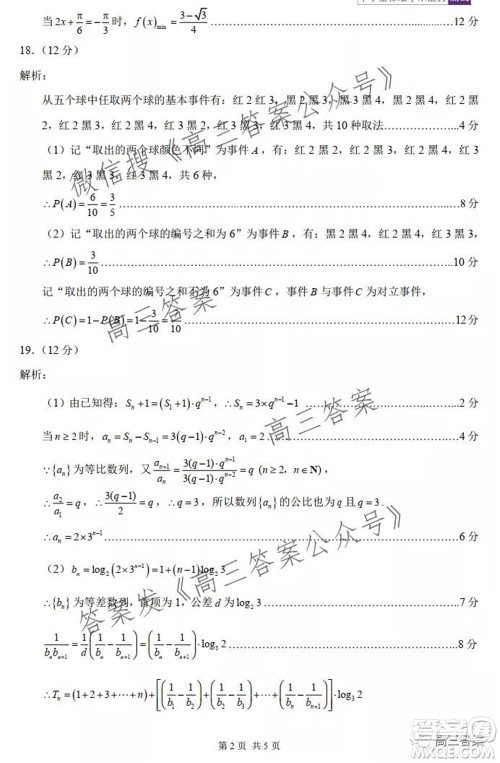 当 2x + π/6 = -π/3 时，f(x)min = (3-√3)/4 ……12 分
18.（12 分）
解析：
从五个球中任取两个球的基本事件有：红 2 红 3，黑 2 黑 3，
红 2 黑 3，红 2 黑 4，红 3 黑 4，共 10 种取法……4 分
（1）记“取出的两个球颜色不同”为事件 A，有：红 2 黑 2，红 2 黑 3，红
2 黑 4，红 3 黑
共 6 种，
∴P(A) = 6/10 = 3/5 ……8 分
（2）记“取出的两个球的编号之和为 6”为事件 B，有：黑 2 黑 4，红 2 黑 4，红 3 黑 3，
∴P(B) = 3/10
记“取出的两个球的编号之和不为 6”为事件 C，事件 C，事件为对立事件，
∴P(C) = 1-P(B) = 1-3/10 = 7/10 ……12 分
19.（12 分）
解析：
（1）由已知得：Sₙ+1 = (S₁+1)·qⁿ⁻¹，∴Sₙ = 3×qⁿ⁻¹-1 ……2 分
当 n ≥ 2 时，aₙ = Sₙ-Sₙ₋₁ = 3(q-1)·qⁿ⁻²，a₁ = 2
∵{aₙ}为等比数列，又 aₙ₊₁/aₙ = 3(q-1)·qⁿ⁻¹/3(q-1)·qⁿ⁻² = q (n ≥ 2，n∈N)，
∴a₂/a₁ = q，∴3(q-1)/2 = q，∴q = 3，所以数列{aₙ}的公比也为 q 且 q = 3
∴aₙ = 2×3ⁿ⁻¹ ……6 分
（2）bₙ = log₂(2×3ⁿ⁻¹) = 1+(n-1)log₂3
∴{bₙ}为等差数列，首项为 1，公差 d 为 log₂3 ……7 分
1/bₙbₙ₊₁ = 1/d(1/bₙ - 1/bₙ₊₁) = (1/bₙ - 1/bₙ₊₁)·log₃2 ……8 分
∴Tₙ = (1+2+3+⋯+n)+[(1/b₁ - 1/b₂)+(1/b₂ - 1/b₃)+⋯+(1/bₙ - 1/bₙ₊₁)]·log₃2
第 2 页 共 5 页
微信搜《高三答案公众号》
高三答案
高三答案
答案发《高三答案公众号》
高三答案